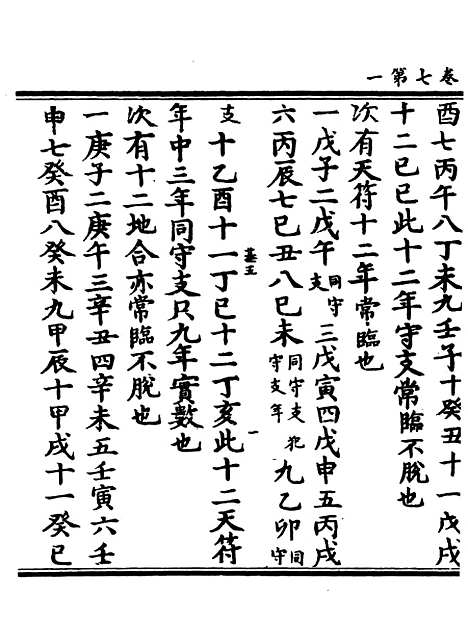 卷七第一
酉七丙午八丁未九壬子十癸丑十一戊戌
十二巳巳此十二年守支常臨不脫也
次有天符十二年常臨也
一戊子二戊午同守支三戊寅四戊申五丙戌
六丙辰七巳丑八巳未同守支犯守支年九乙卯同守
支十乙酉十一丁巳十二丁亥此十二天符
年中三年同守支只九年實數也
次有十二地合亦常臨不脫也
一庚子二庚午三辛丑四辛未五壬寅六壬
申七癸酉八癸未九甲辰十甲戌十一癸巳
一